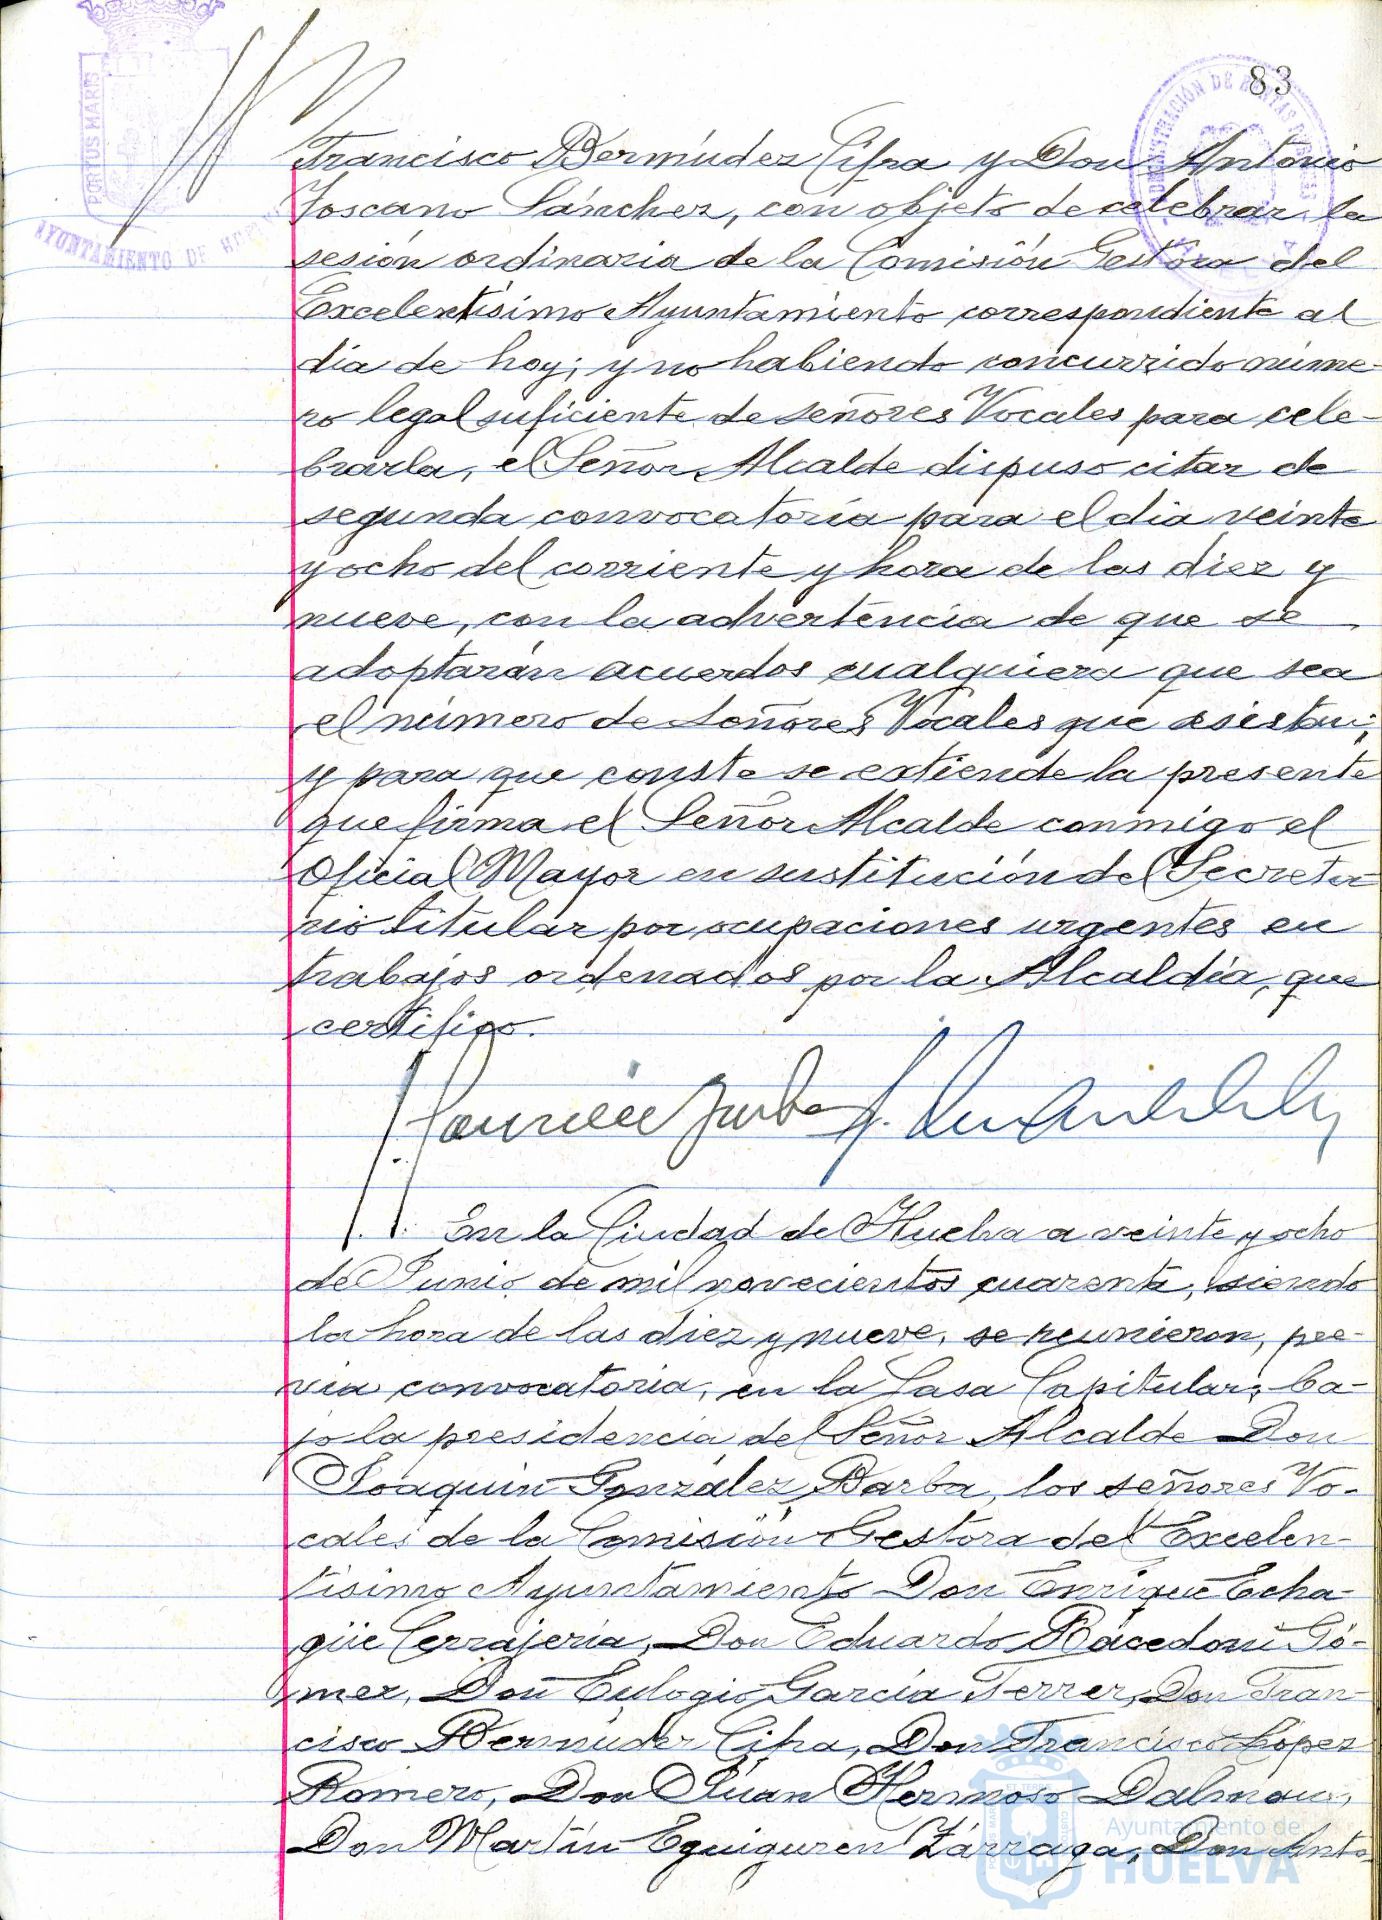 83
PORTUS MARIS
AYUNTAMIENTO DE HUELVA
ADMINISTRACIÓN DE RENTAS
Francisco Bermúdez Cifra y Don Antonio
Toscano Sánchez, con objeto de celebrar la
sesión ordinaria de la Comisión Gestora del
Excelentísimo Ayuntamiento correspondiente al
día de hoy; y no habiendo concurrido núme-
ro legal suficiente de señores Vocales para cele-
brarla, el Señor Alcalde dispuso citar de
segunda convocatoria para el dia veinte
y ocho del corriente y hora de las diez y
nueve, con la advertencia de que se
adoptarán acuerdos cualquiera que sea
el número de Señores Vocales que asistan;
y para que conste se extiende la presente
que firma el Señor Alcalde conmigo el
Oficial Mayor en sustitución del Secreta-
rio titular por ocupaciones urgentes en
trabajos ordenados por la Alcaldía, que
certifico.
En la Ciudad de Huelva a veinte y ocho
de Junio de mil novecientos cuarenta, siendo
la hora de las diez y nueve, se reunieron, pre-
via convocatoria, en la Casa Capitular, ba-
jo la presidencia del Señor Alcalde Don
Joaquín González Barba, los señores Vo-
cales de la Comisión Gestora del Excelen-
tísimo Ayuntamiento Don Enrique Echa-
güe Cerrajería, Don Eduardo Rácedoni Gó-
mez, Don Eulogio García Ferrer, Don Fran-
cisco Bermúdez Cifra, Don Francisco López
Romero, Don Juan Hermoso Dalmau,
Don Martín Eguiguren Zárraga, Don Anto-
Ayuntamiento de
HUELVA